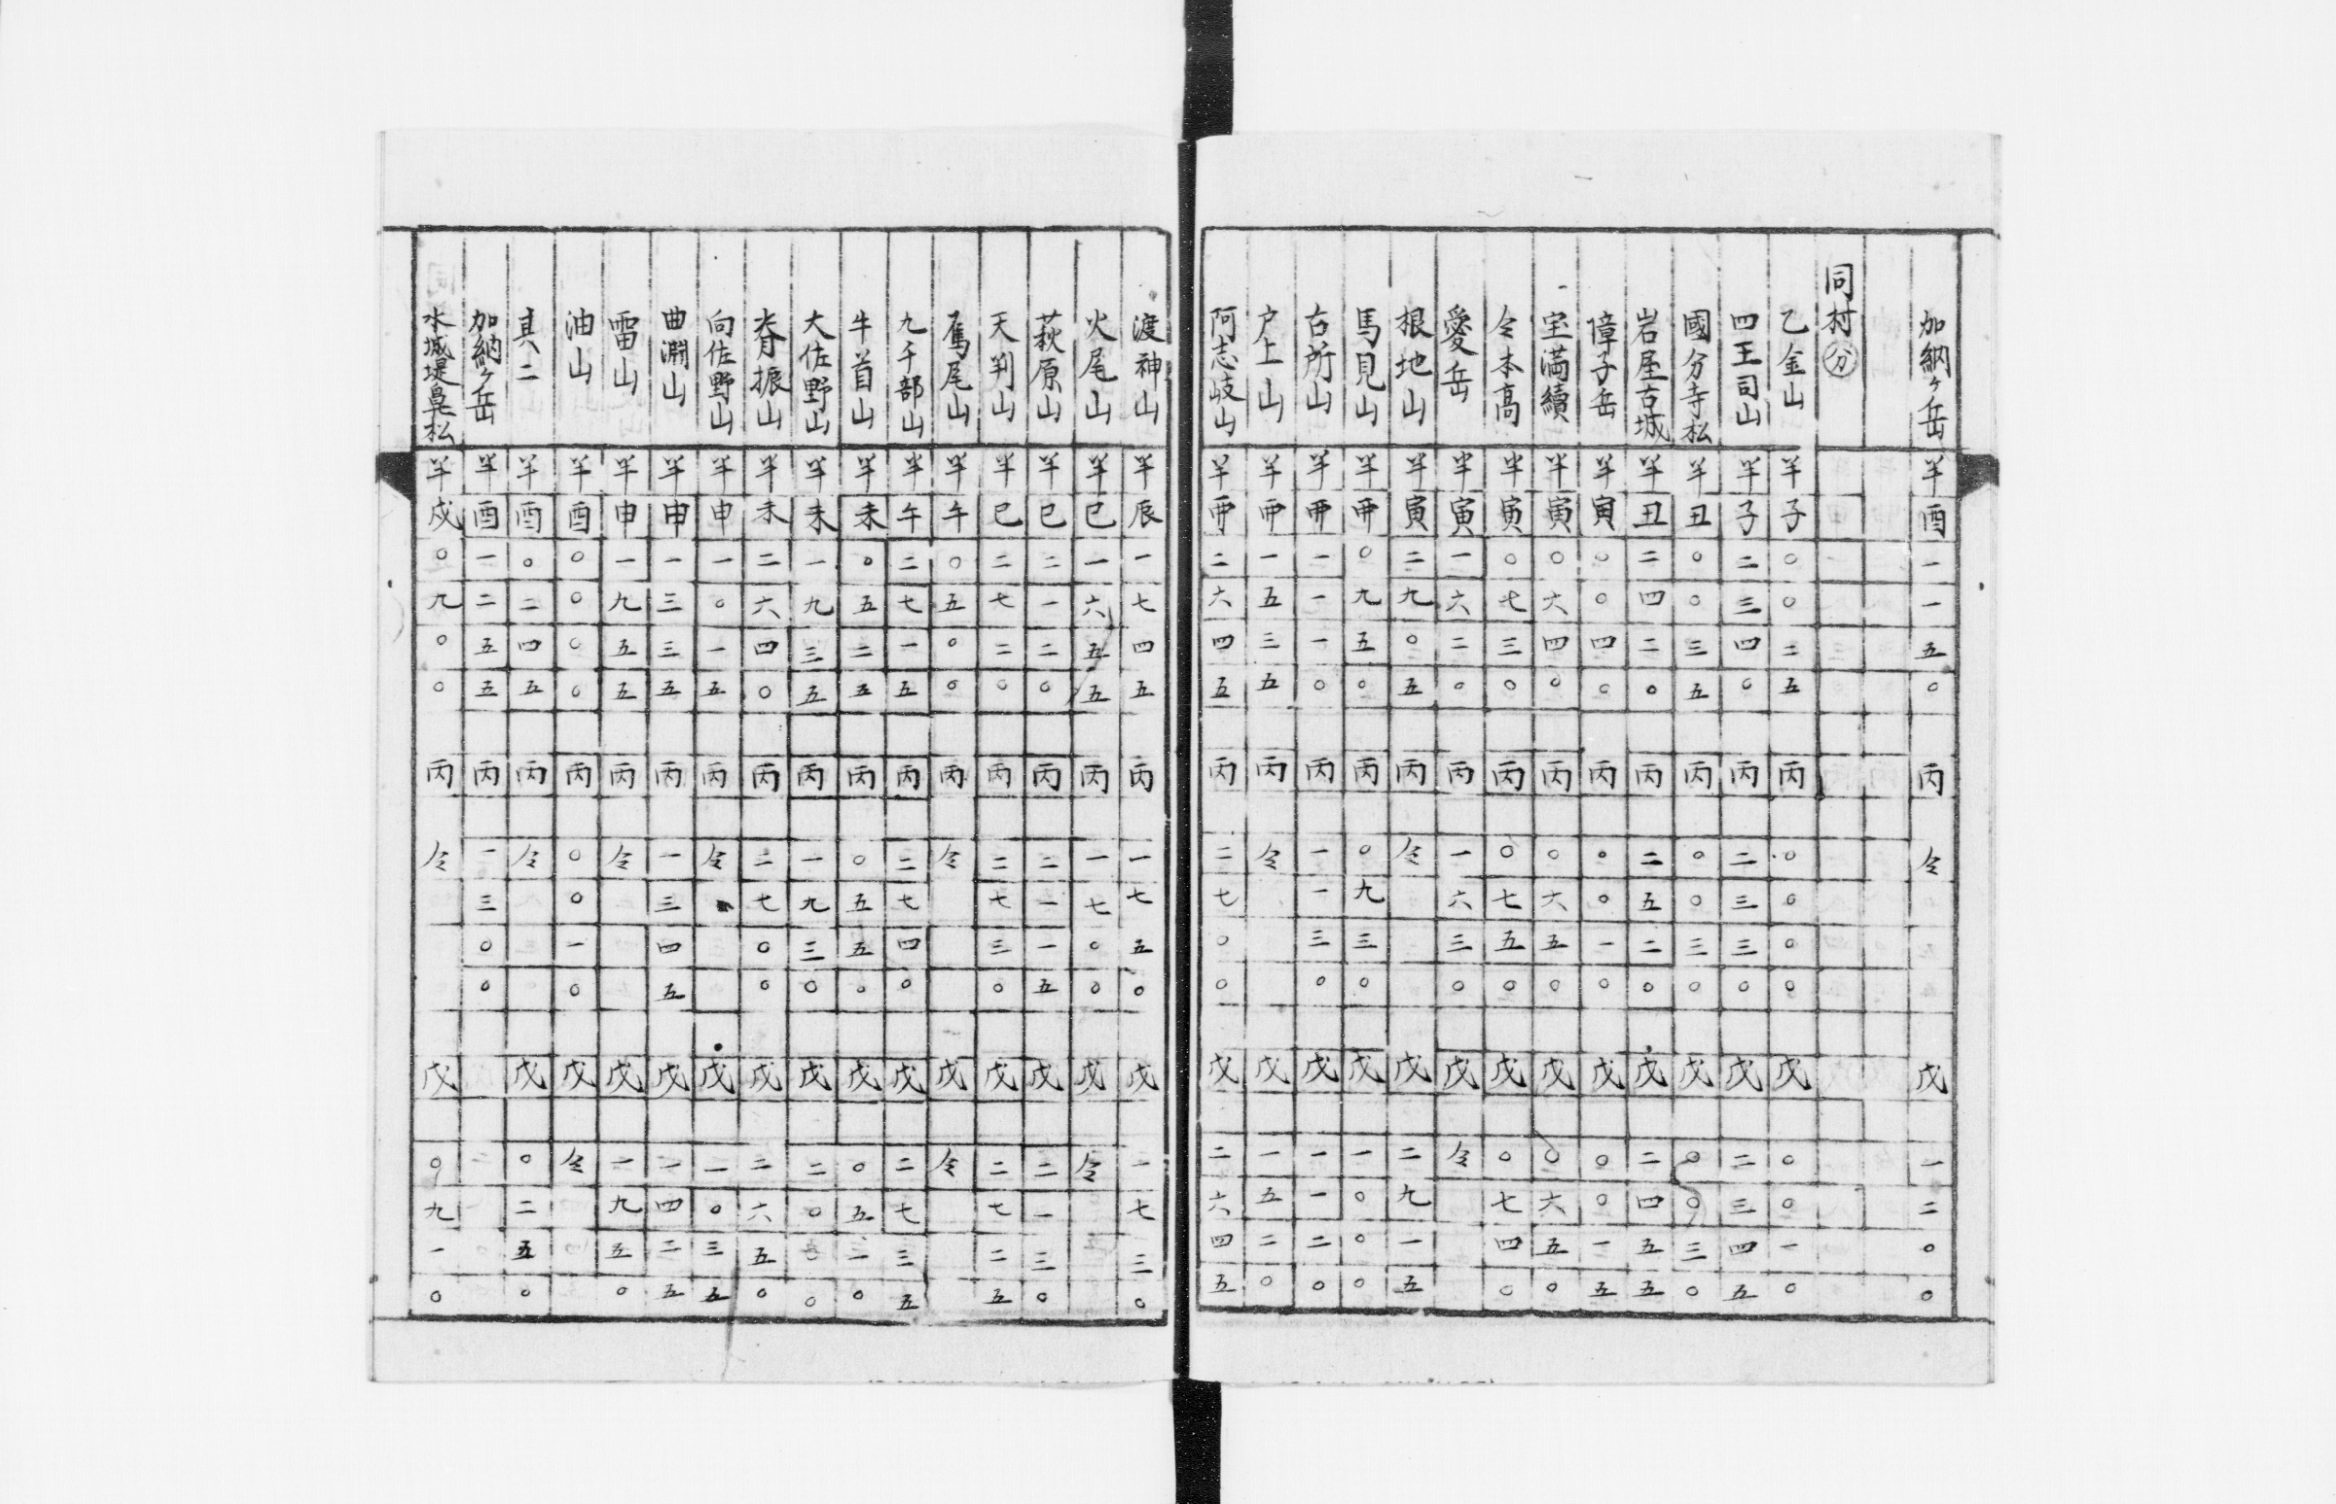 加納ヶ岳 半 酉 一 一 五 〇 丙 仝 戊 一 二 〇 〇
同村 分
乙金山 半 子 〇 〇 二 五 丙 〇 〇 〇 〇 戊 〇 〇 一 〇
四王司山 半 子 二 三 四 〇 丙 二 三 三 〇 戊 二 三 四 五
國分寺松 半 丑 〇 〇 三 五 丙 〇 〇 三 〇 戊 〇 〇 三 〇
岩屋古城 半 丑 二 四 二 〇 丙 二 五 二 〇 戊 二 四 五 五
障子岳 半 寅 〇 〇 四 〇 丙 〇 〇 一 〇 戊 〇 〇 一 五
宝満續 半 寅 〇 六 四 〇 丙 〇 六 五 〇 戊 〇 六 五 〇
仝本高 半 寅 〇 七 三 〇 丙 〇 七 五 〇 戊 〇 七 四 〇
愛岳 半 寅 一 六 二 〇 丙 一 六 三 〇 戊 仝
根地山 半 寅 二 九 〇 五 丙 仝 戊 二 九 一 五
馬見山 半 卯 〇 九 五 〇 丙 〇 九 三 〇 戊 一 〇 〇 〇
古所山 半 卯 一 一 一 〇 丙 一 一 三 〇 戊 一 一 二 〇
戸上山 半 卯 一 五 三 五 丙 仝 戊 一 五 二 〇
阿志岐山 半 卯 二 六 四 五 丙 二 七 〇 〇 戊 二 六 四 五
渡神山 半 辰 一 七 四 五 丙 一 七 五 〇 戊 一 七 三 〇
火尾山 半 巳 一 六 五 五 丙 一 七 〇 〇 戊 仝
萩原山 半 巳 二 一 二 〇 丙 二 一 一 五 戊 二 一 三 〇
天判山 半 巳 二 七 二 〇 丙 二 七 三 〇 戊 二 七 二 五
鴈尾山 半 午 〇 五 〇 〇 丙 仝 戊 仝
九千部山 半 午 二 七 一 五 丙 二 七 四 〇 戊 二 七 三 五
牛首山 半 未 〇 五 二 五 丙 〇 五 五 〇 戊 〇 五 一 〇
大佐野山 半 未 一 九 三 五 丙 一 九 三 〇 戊 二 〇 〇 〇
脊振山 半 未 二 六 四 〇 丙 二 七 〇 〇 戊 二 六 五 〇
向佐野山 半 申 一 〇 一 五 丙 仝 戊 一 〇 三 五
曲淵山 半 申 一 三 三 五 丙 一 三 四 五 戊 一 四 二 五
雷山 半 申 一 九 五 五 丙 仝 戊 一 九 五 〇
油山 半 酉 〇 〇 〇 〇 丙 〇 〇 一 〇 戊 仝
其二 半 酉 〇 二 四 五 丙 仝 戊 〇 二 五 〇
加納ヶ岳 半 酉 一 二 五 五 丙 一 三 〇 〇
水城堤鼻松 半 戌 〇 九 〇 〇 丙 仝 戊 〇 九 一 〇